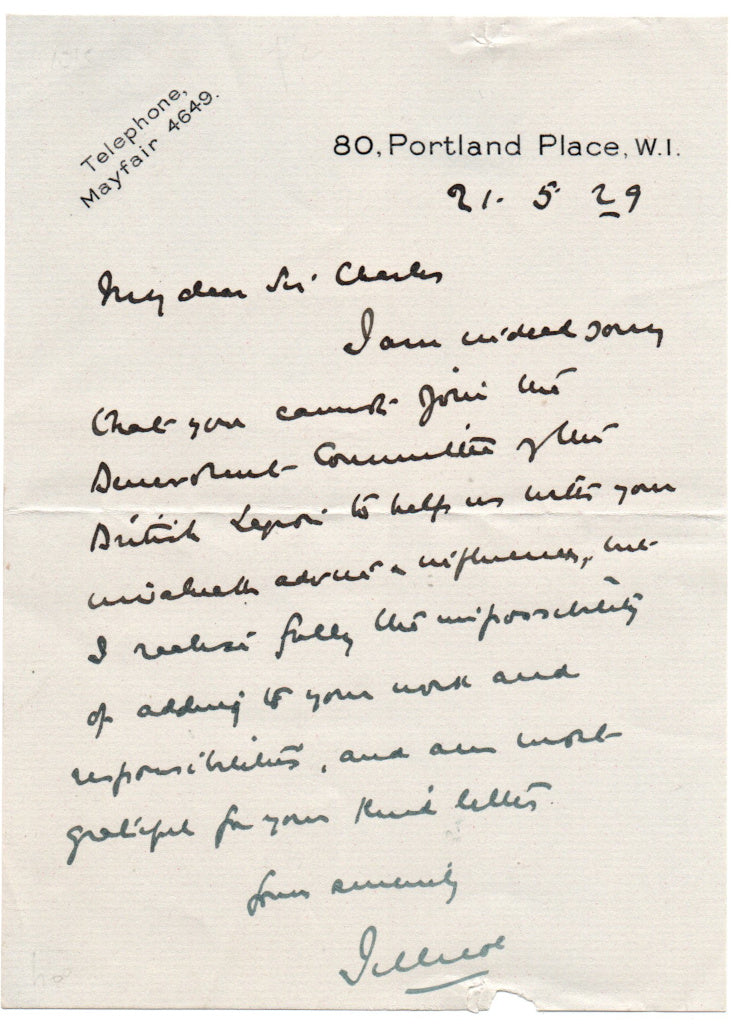 Telephone,
Mayfair 4649.
80, Portland Place, W.1.
21. 5. 29
My dear Sir Charles
I am indeed sorry
that you cannot join the
Benevolent Committee of the
British Legion to help us with your
invaluable advice & influence, but
I realise fully the impossibility
of adding to your work and
responsibilities, and am most
grateful for your kind letter
Yours sincerely
Jellicoe